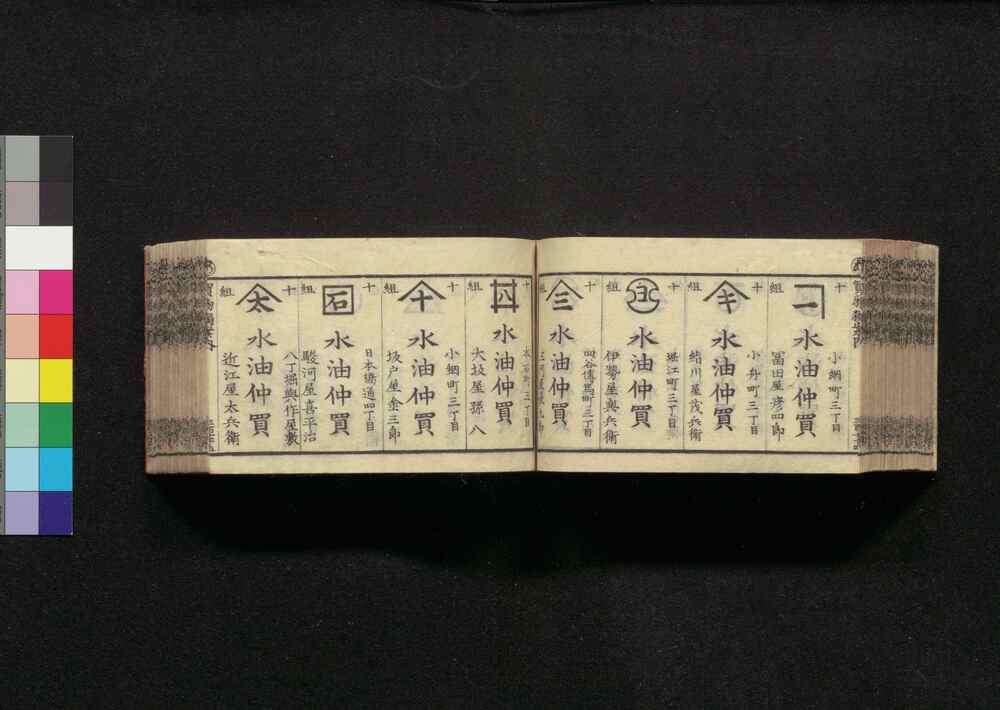 十組
水油仲買
小網町三丁目
冨田屋彦四郎
十組
キ
水油仲買
小舟町三丁目
緒川屋茂兵衛
十組
水油仲買
堀江町三丁目
伊勢屋與兵衛
十組
三
水油仲買
四谷傳馬町三丁目
十
水油仲買
三丁目
大坂屋孫八
十組
十
水油仲買
小網町三丁目
坂戸屋
三郎
十組
石
水油仲買
日本橋通四丁目
駿河屋喜平治
十組
太
水油仲買
八丁堀與作屋敷
近江屋太兵衛